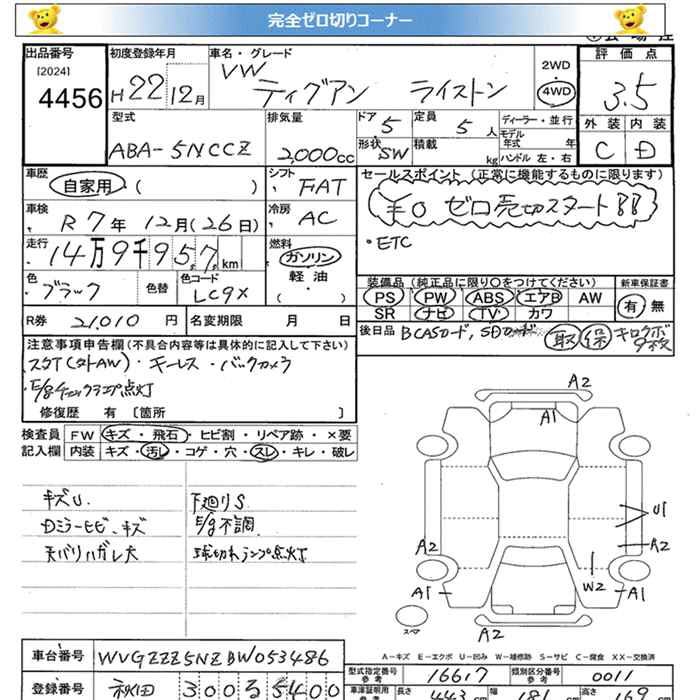 完全ゼロ切りコーナー
出品番号 初度登録年月 車名・グレード 評価点
[2024] VW 2WD
4456 H22 12月 ティグアン ライストン 4WD 3.5
型式 排気量 ドア 5 定員 5人 ディーラー・並行 外装 内装
モデル年式 年
ABA-5NCCZ 2,000cc 形状 SW 積載 kg ハンドル 左・右 C D
車歴 自家用・( ) シフト FAT セールスポイント (正常に機能するものに限ります)
車検 R7年12月(26日) 冷房 AC ¥0 ゼロ売切スタート!!
・ETC
走行 14万9千957km 燃料 ガソリン・軽油・( )
色 ブラック 色替 色コード LC9X
装備品 (純正品に限り○をつけてください) 新車保証書
PS PW ABS エアB AW 有・無
SR ナビ TV カワ
R券 21,010円 名変期限 月 日 後日品 BCASカード、SDカード 取 保 キロクボ 9枚
注意事項申告欄(不具合内容等は具体的に記入して下さい)
スタT(外AW)・キーレス・バックカメラ
・E/gチェックランプ点灯
修復歴 有 〔箇所 〕
検査員記入欄 FW キズ・飛石・ヒビ割・リペア跡・×要
内装 キズ・汚レ・コゲ・穴・スレ・キレ・破レ
キズU. 下廻りS
Dミラーヒビ、キズ E/g不調
天バリハガレ大 球切れランプ点灯
A2
A1
U1
A2 A2
W2
A1 A1
スペア
A2
A-キズ E-エクボ U-凹み W-補修跡 S-サビ C-腐食 XX-交換済
車台番号 WVGZZZ5NZBW053486
型式指定番号 16617 類別区分番号 0011
参考 参考
登録番号 秋田 300 る 5400
車庫証明用参考 長さ 443cm 幅 181cm 高さ 169cm